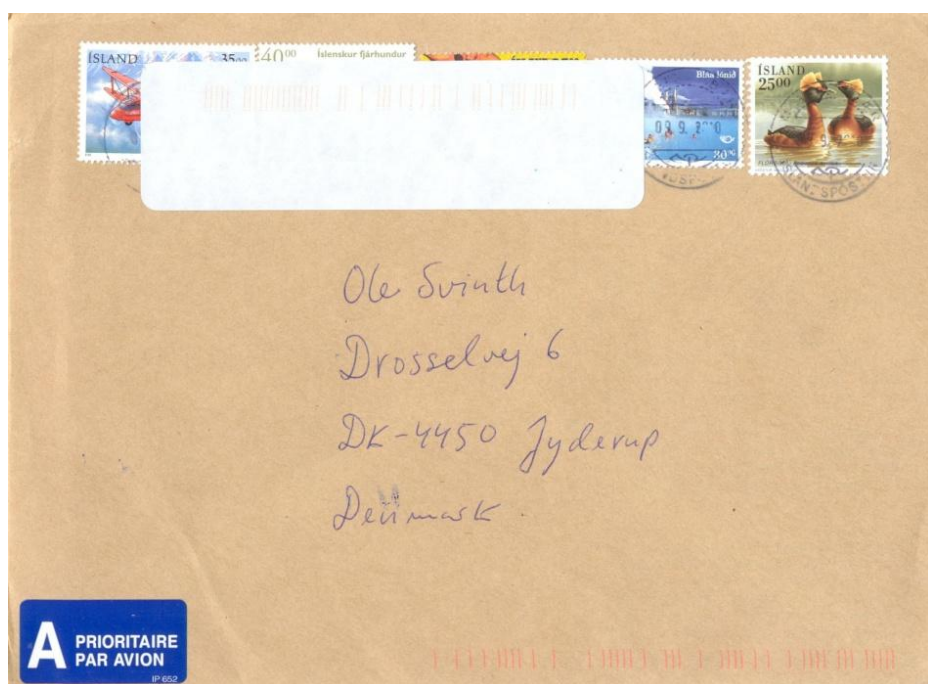 ÍSLAND 35⁰⁰
40⁰⁰ Íslenskur fjárhundur
Bláa lónið
09.9.2010
30
ÍSLAND
25⁰⁰
ÍSLANDSPÓSTUR
Ole Svinth
Drosselvej 6
DK-4450 Jyderup
Denmark
A PRIORITAIRE
PAR AVION
IP 652